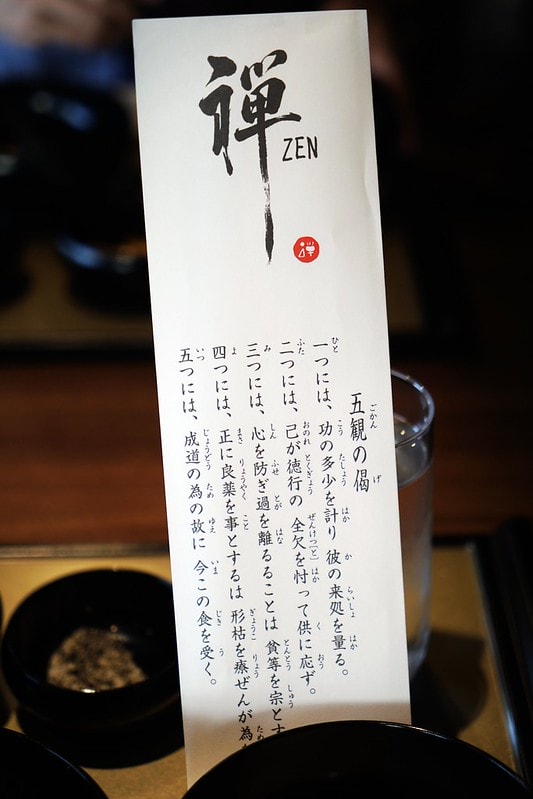 禅
ZEN
禅
五観の偈
一つには、功の多少を計り 彼の来処を量る。
二つには、己が徳行の 全欠を忖って供に応ず。
三つには、心を防ぎ過を離るることは 貪等を宗とす
四つには、正に良薬を事とするは 形枯を療ぜんが為
五つには、成道の為の故に 今この食を受く。